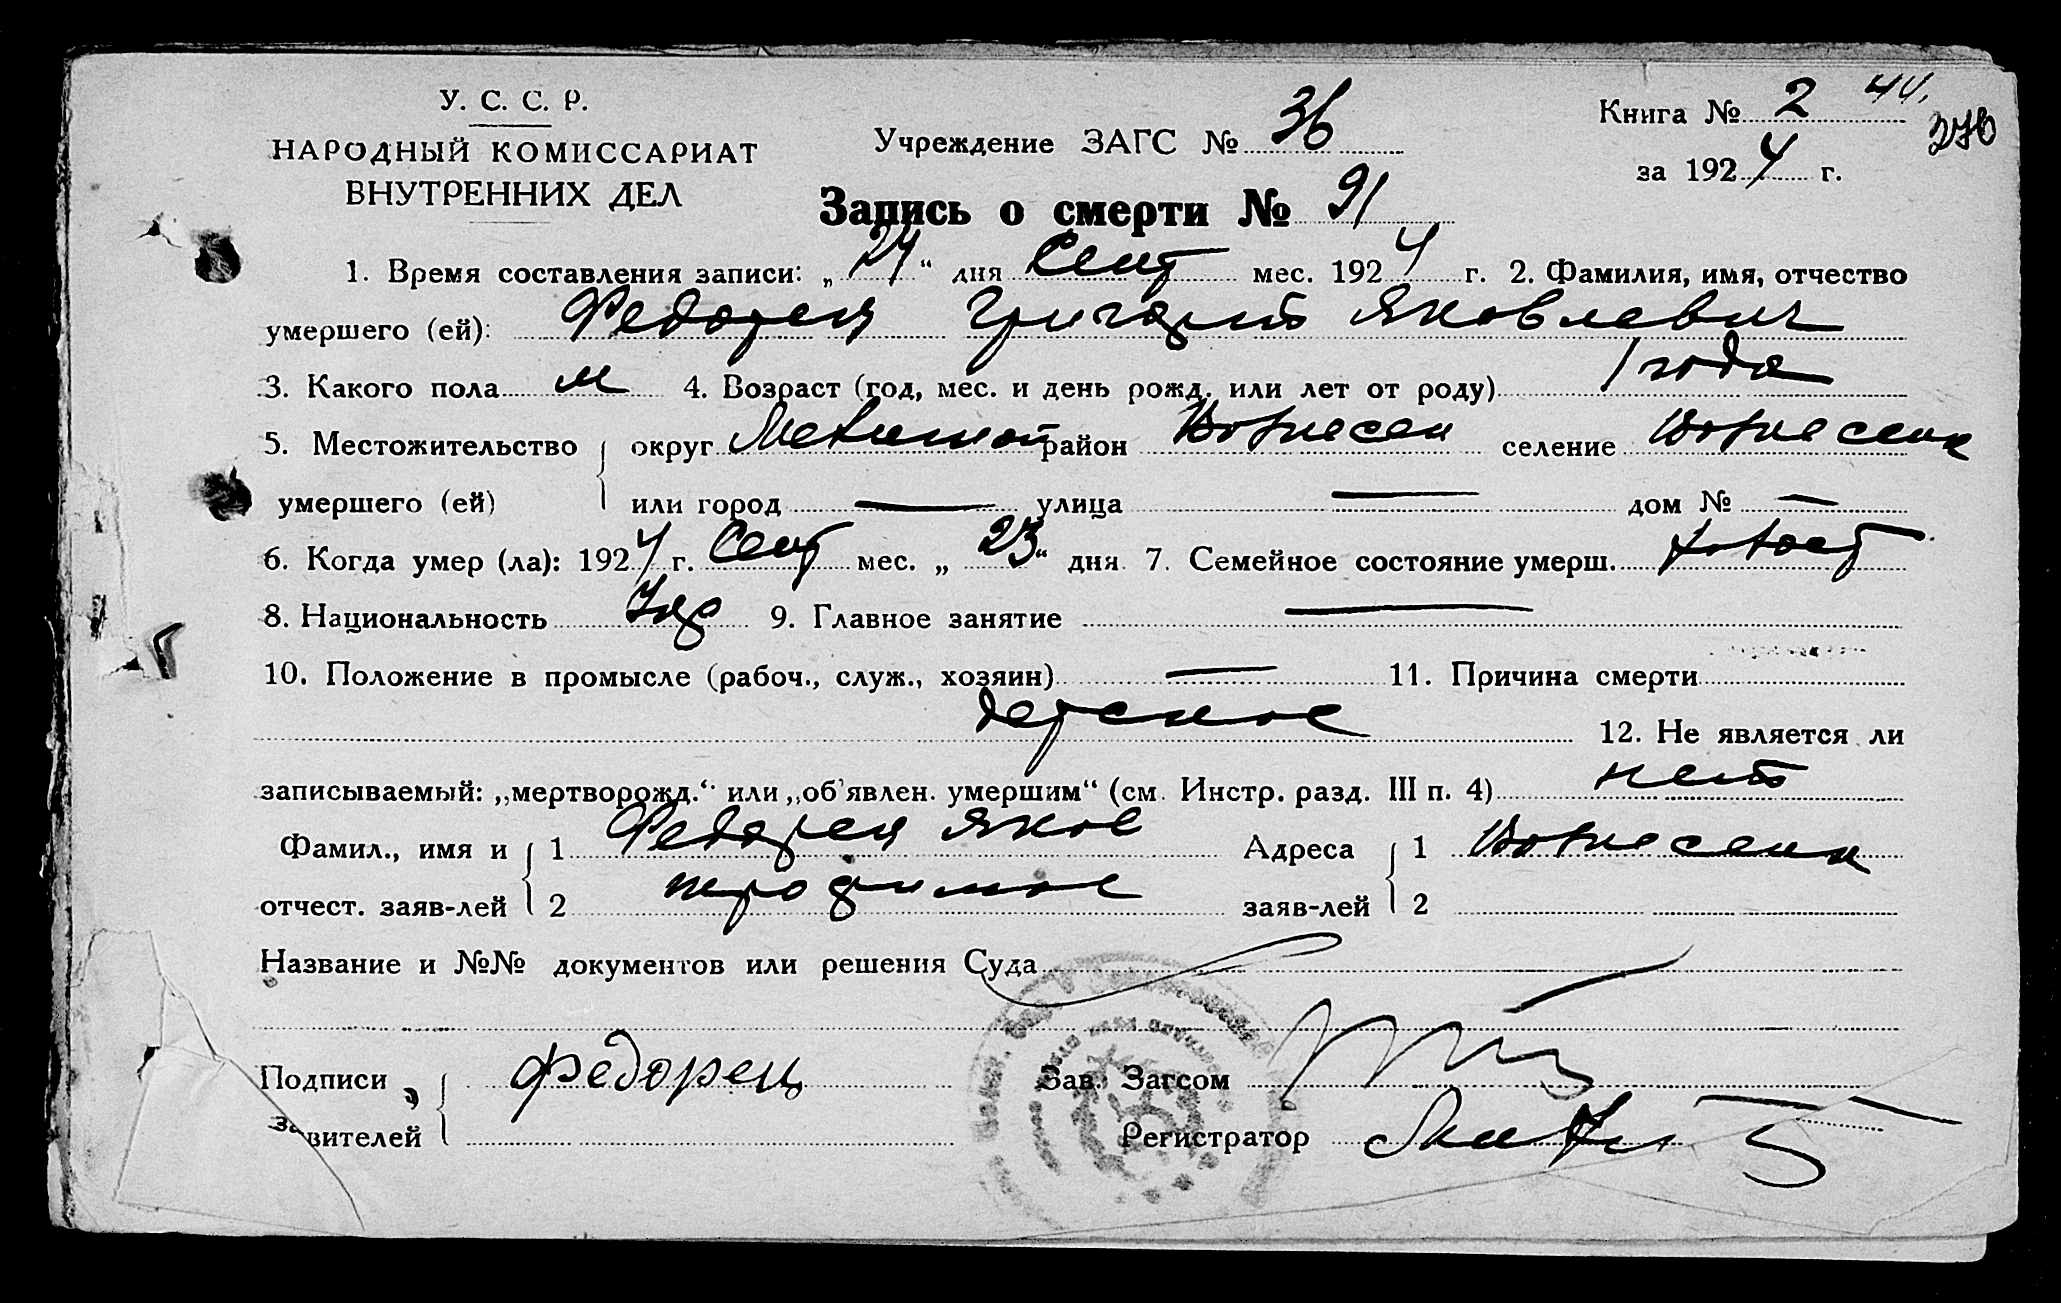 У. С. С. Р.
НАРОДНЫЙ КОМИССАРИАТ
ВНУТРЕННИХ ДЕЛ
Учреждение ЗАГС № 36
Книга № 2 44.
276
за 1924 г.
Запись о смерти № 91
1. Время составления записи: „24“ дня Сент мес. 1924 г. 2. Фамилия, имя, отчество
умершего (ей): Федорец Григорий Яковлевич
3. Какого пола м 4. Возраст (год, мес. и день рожд. или лет от роду) 1 года
5. Местожительство округ Мелитоп район Вознесен селение Вознесенк
умершего (ей) или город — улица — дом № —
6. Когда умер (ла): 1924 г. Сент мес. „23“ дня 7. Семейное состояние умерш. холост
8. Национальность Укр 9. Главное занятие —
10. Положение в промысле (рабоч., служ., хозяин) — 11. Причина смерти
детское 12. Не является ли
записываемый: „мертворожд.“ или „об'явлен. умершим“ (см. Инстр. разд. III п. 4) нет
Фамил., имя и 1 Федорец Яков Адреса 1 Вознесенк
отчест. заяв-лей 2 заяв-лей 2
Название и №№ документов или решения Суда
Подписи Федорец Зав. Загсом
заявителей Регистратор